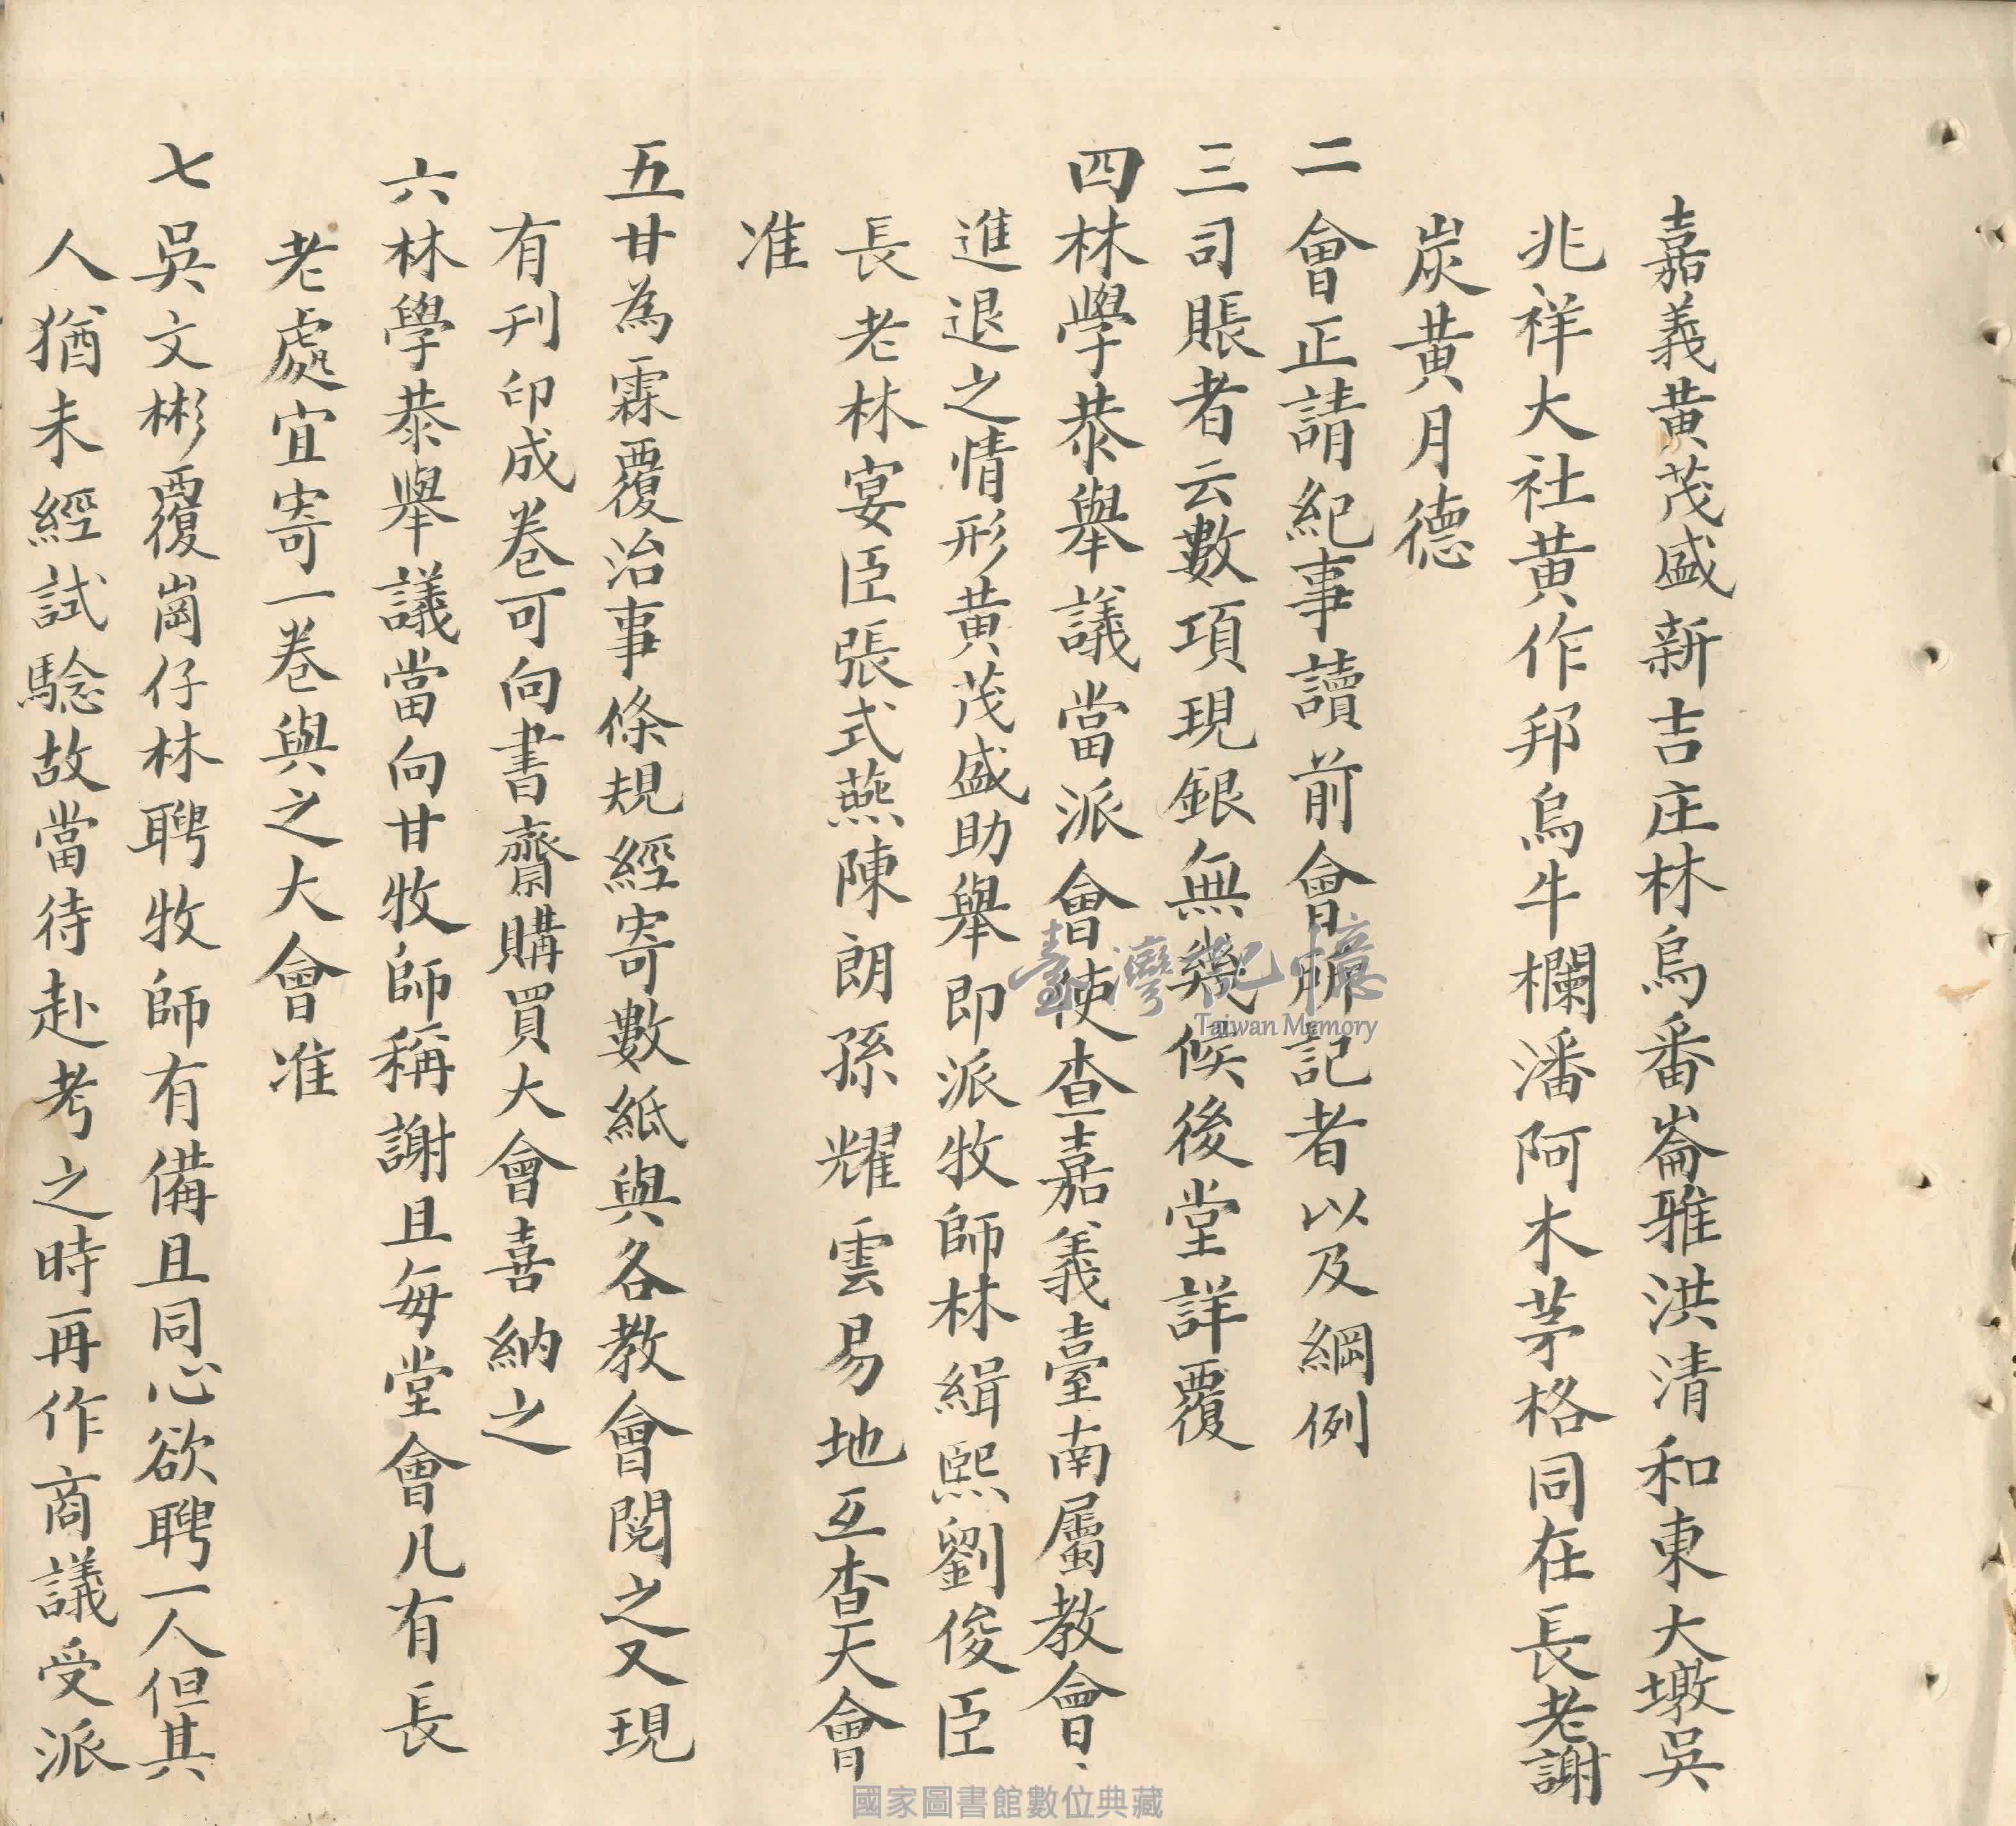 嘉義黃茂盛新吉庄林烏番崙雅洪清和東大墩吳
兆祥大社黃作邦烏牛欄潘阿木茅格同在長老謝
炭黃月德
二會正請紀事讀前會所記者以及綱例
三司賬者云數項現銀無幾候後堂詳覆
四林學恭舉議當派會使查嘉義臺南屬教會、
進退之情形黃茂盛助舉即派牧師林緝熙劉俊臣
長老林宴臣張式燕陳朗孫耀雲易地互查大會
准
五甘為霖覆治事條規經寄數紙與各教會閱之又現
有刊印成卷可向書齋購買大會喜納之
六林學恭舉議當向甘牧師稱謝且每堂會凡有長
老處宜寄一卷與之大會准
七吳文彬覆崗仔林聘牧師有備且同心欲聘一人但其
人猶未經試驗故當待赴考之時再作商議受派
臺灣記憶
Taiwan Memory
國家圖書館數位典藏